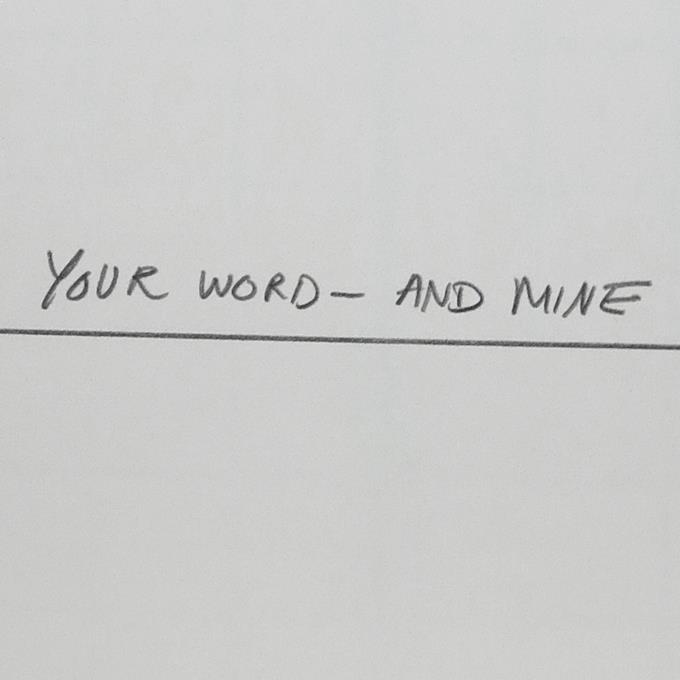 YOUR WORD — AND MINE